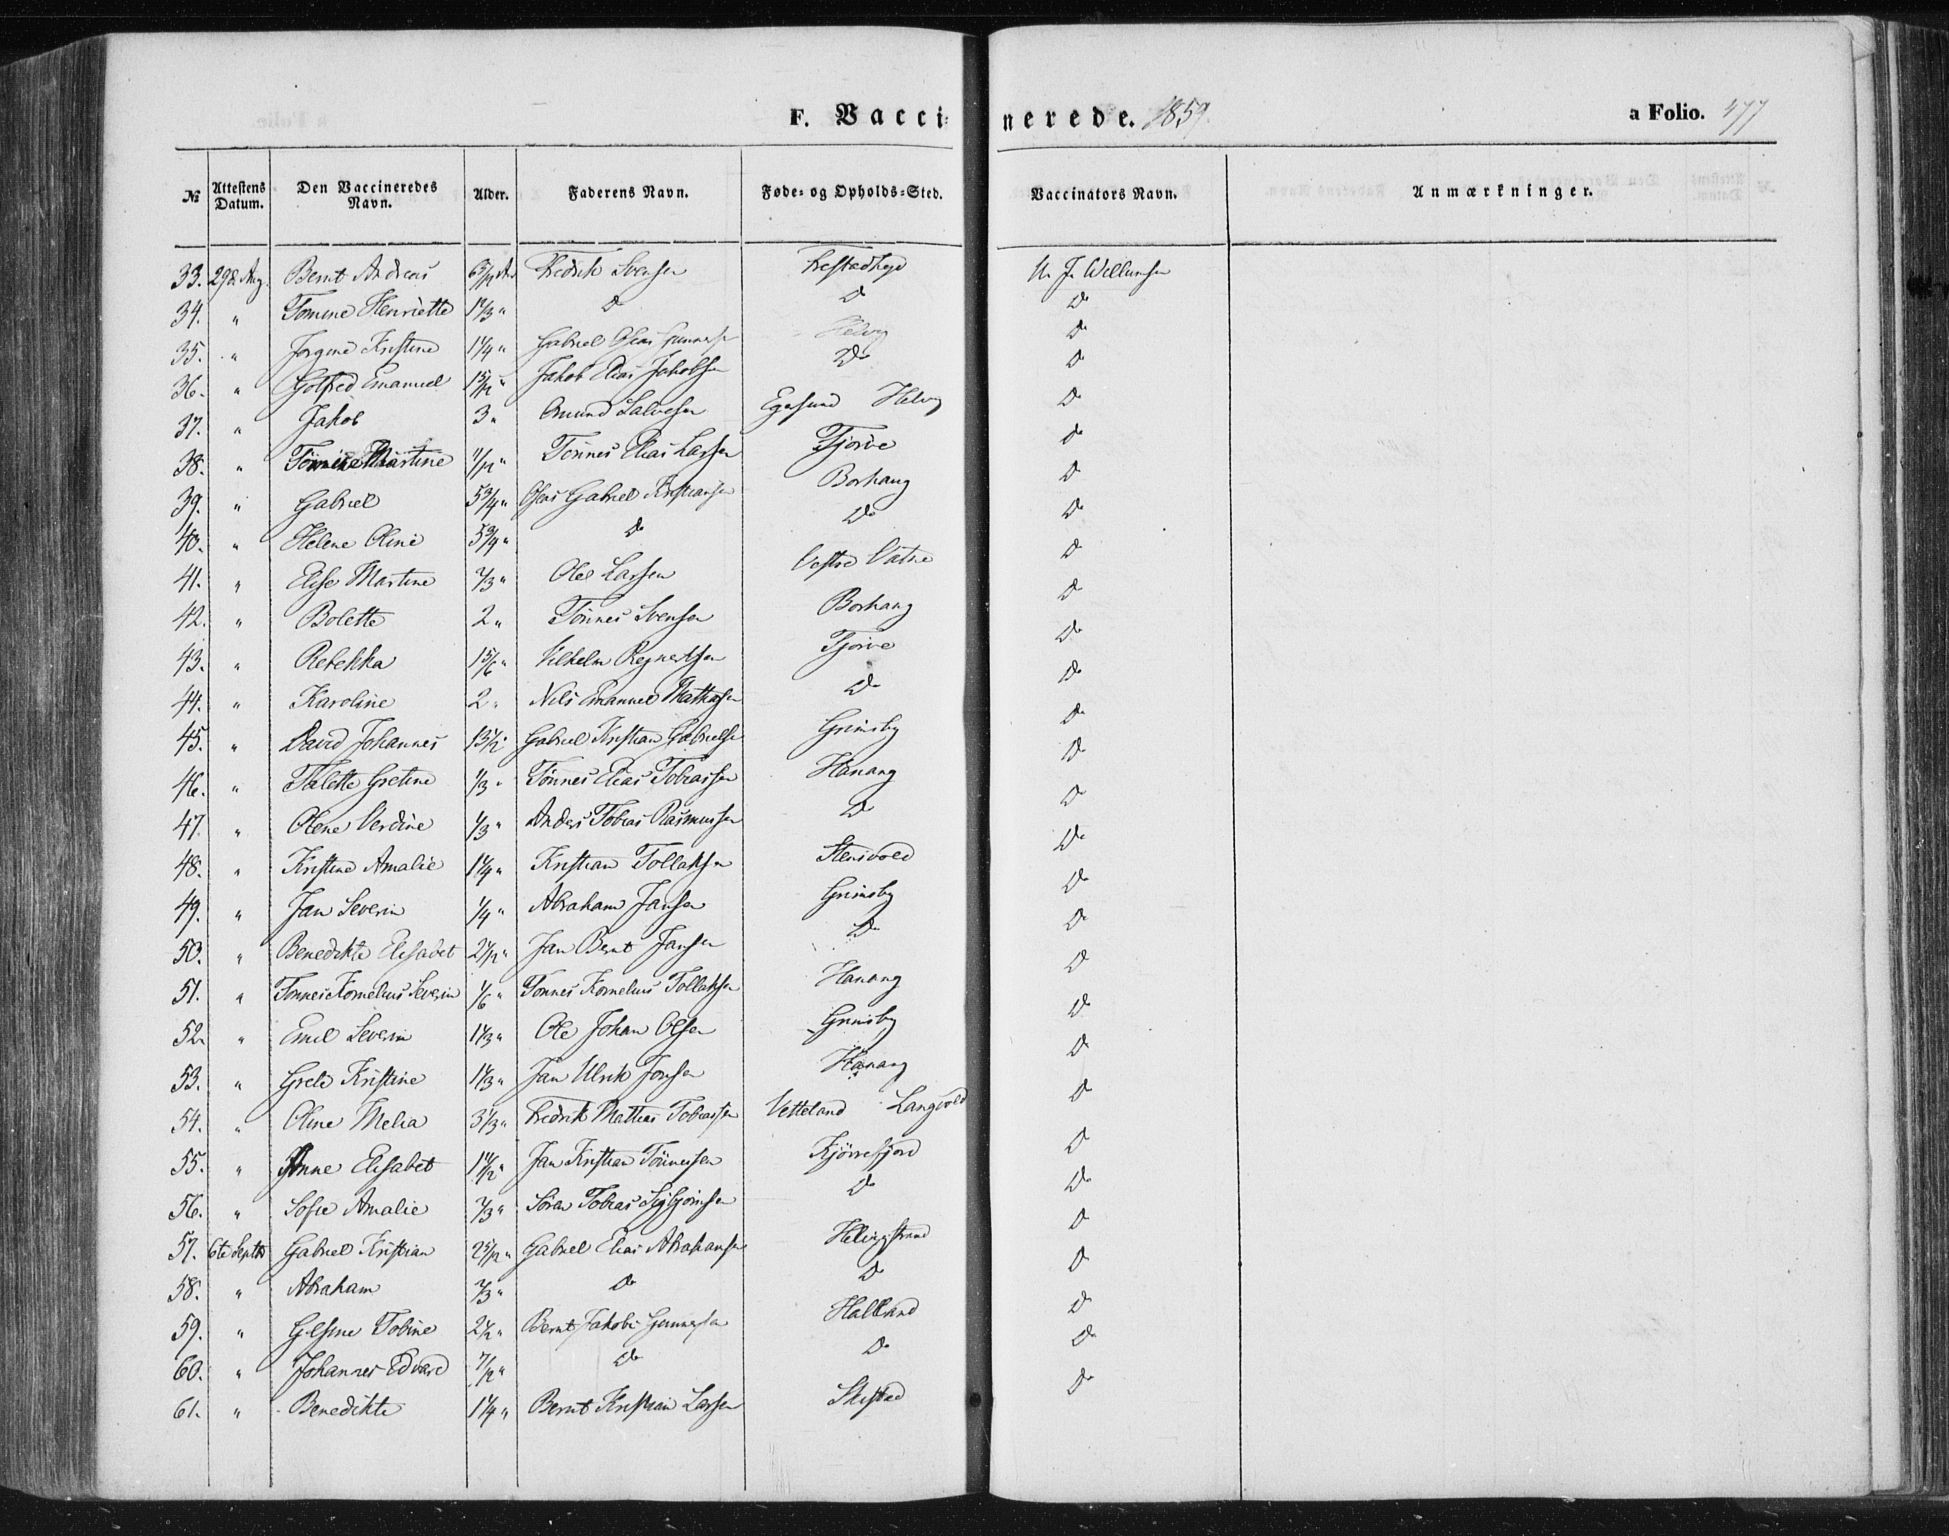 F. Vaccinerede. 1859. a Folio. 477
№ Attestens Datum. Den Vaccineredes Navn. Alder. Faderens Navn. Føde- og Opholds-Sted. Vaccinators Navn. Anmærkninger.
33. 29de Aug. Bernt Andreas Fredrik Svensen
34. " Tomine Henriette 1 1/3 " Do Do Do
35. " Jørgine Kristine 1 1/4 " Gabriel Oseas Gunnersen Helvig Do
36. " Gotfred Emanuel 1 5/12 " Jakob Elias Jakobsen Do Do
37. " Jakob 3 " Omund Salvesen Egesund Helvig Do
38. " Martine 1/12 " Tønnes Elias Larsen Tjørve Do
39. " Gabriel 5 3/4 " Oseas Gabriel Kristiansen Borhaug Do
40. " Helene Oline 5 3/4 " Do Do Do
41. " Elise Martine 2/3 " Ole Larsen Vestre Vatne Do
42. " Bolette 2 " Tønnes Svensen Borhaug Do
43. " Rebekka 1 5/6 " Vilhelm Regnertsen Tjørve Do
44. " Karoline 2 " Nils Emanuel Mathiasen Do Do
45. " David Johannes 13 1/2 " Gabriel Kristian Gabrielsen Grimsby Do
46. " Talette Gretine 1/3 " Tønnes Elias Tobiassen Hanang Do
47. " Olene Verdine 1/3 " Anders Tobias Rasmussen Do Do
48. " Kristine Amalie 1 1/4 " Kristian Tollaksen Stensvold Do
49. " Jan Severin 1/4 " Abraham Jansen Grimsby Do
50. " Benedikte Elisabet 2 1/12 " Jan Bernt Jansen Do Do
51. " Tønnes Kornelius Severin 1/6 " Tønnes Kornelius Tollaksen Hanang Do
52. " Emil Severin 1 1/3 " Ole Johan Olsen Grimsby Do
53. " Grete Kristine 1 1/3 " Jan Ulrik Jonsen Hanang Do
54. " Oline Melia 3 1/3 " Fredrik Mathias Tobiassen Vetteland Langvold Do
55. " Anne Elisabet 1 1/2 " Jan Kristian Tønnessen Kjørrefjord Do
56. " Sofie Amalie 2/3 " Søren Tobias Sigbjørnsen Do Do
57. 6te Septbr Gabriel Kristian 2 5/12 " Gabriel Elias Abrahamsen Helvigstrand Do
58. " Abraham 2/3 " Do Do Do
59. " Gesine Tobine 2 1/2 " Bernt Jakob Gunnersen Halland Do
60. " Johannes Edvard 7/12 " Do Do Do
61. " Benedikte 1 1/4 " Bernt Kristian Larsen Skistad Do